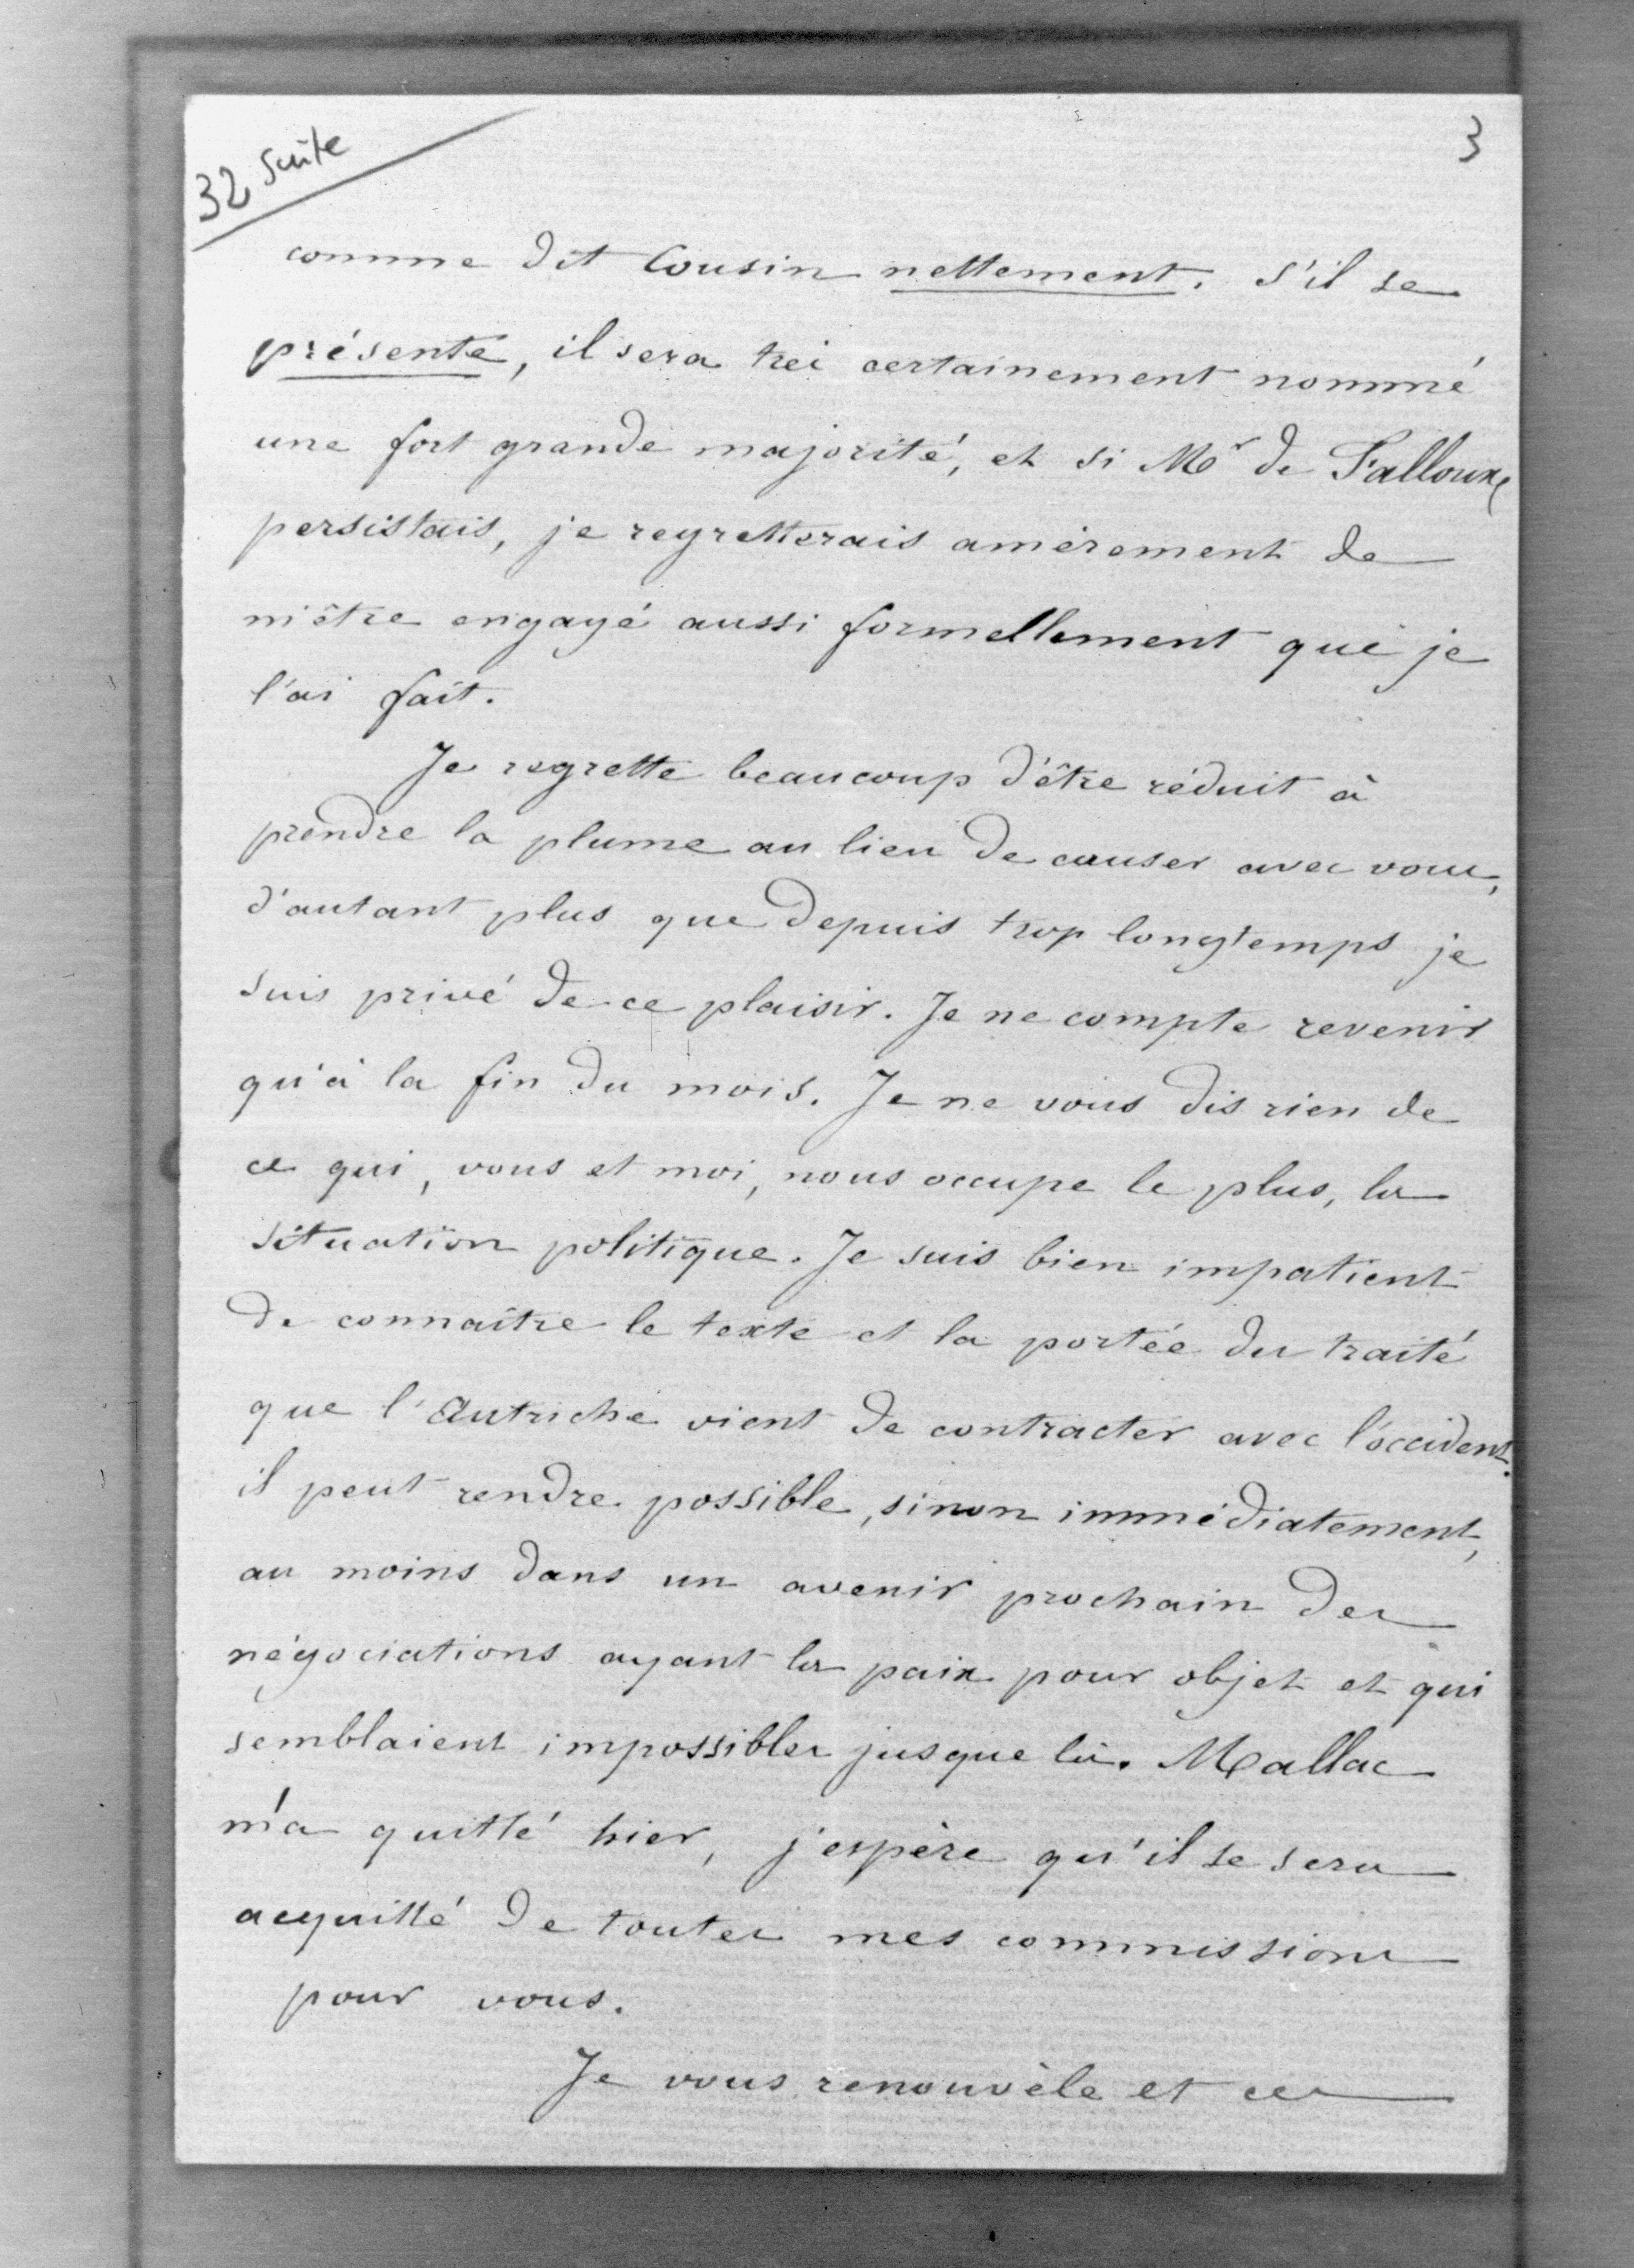 32 suite
3
comme dit Cousin nettement. S'il se
présente, il sera très certainement nommé
une fort grande majorité, et si Mr de Falloux
persistais, je regretterais amèrement de
m'être engagé aussi formellement que je
l'ai fait.
Je regrette beaucoup d'être réduit à
prendre la plume au lieu de causer avec vous,
d'autant plus que depuis trop longtemps je
suis privé de ce plaisir. Je ne compte revenir
qu'à la fin du mois. Je ne vous dis rien de
ce qui, vous et moi, nous occupe le plus, la
situation politique. Je suis bien impatient
de connaître le texte et la portée du traité
que l'Autriche vient de contracter avec l'occident.
il peut rendre possible, sinon immédiatement,
au moins dans un avenir prochain des
négociations ayant la paix pour objet et qui
semblaient impossibles jusque là. Mallac
m'a quitté hier, j'espère qu'il se sera
acquitté de toutes mes commissions
pour vous.
Je vous renouvèle et ces